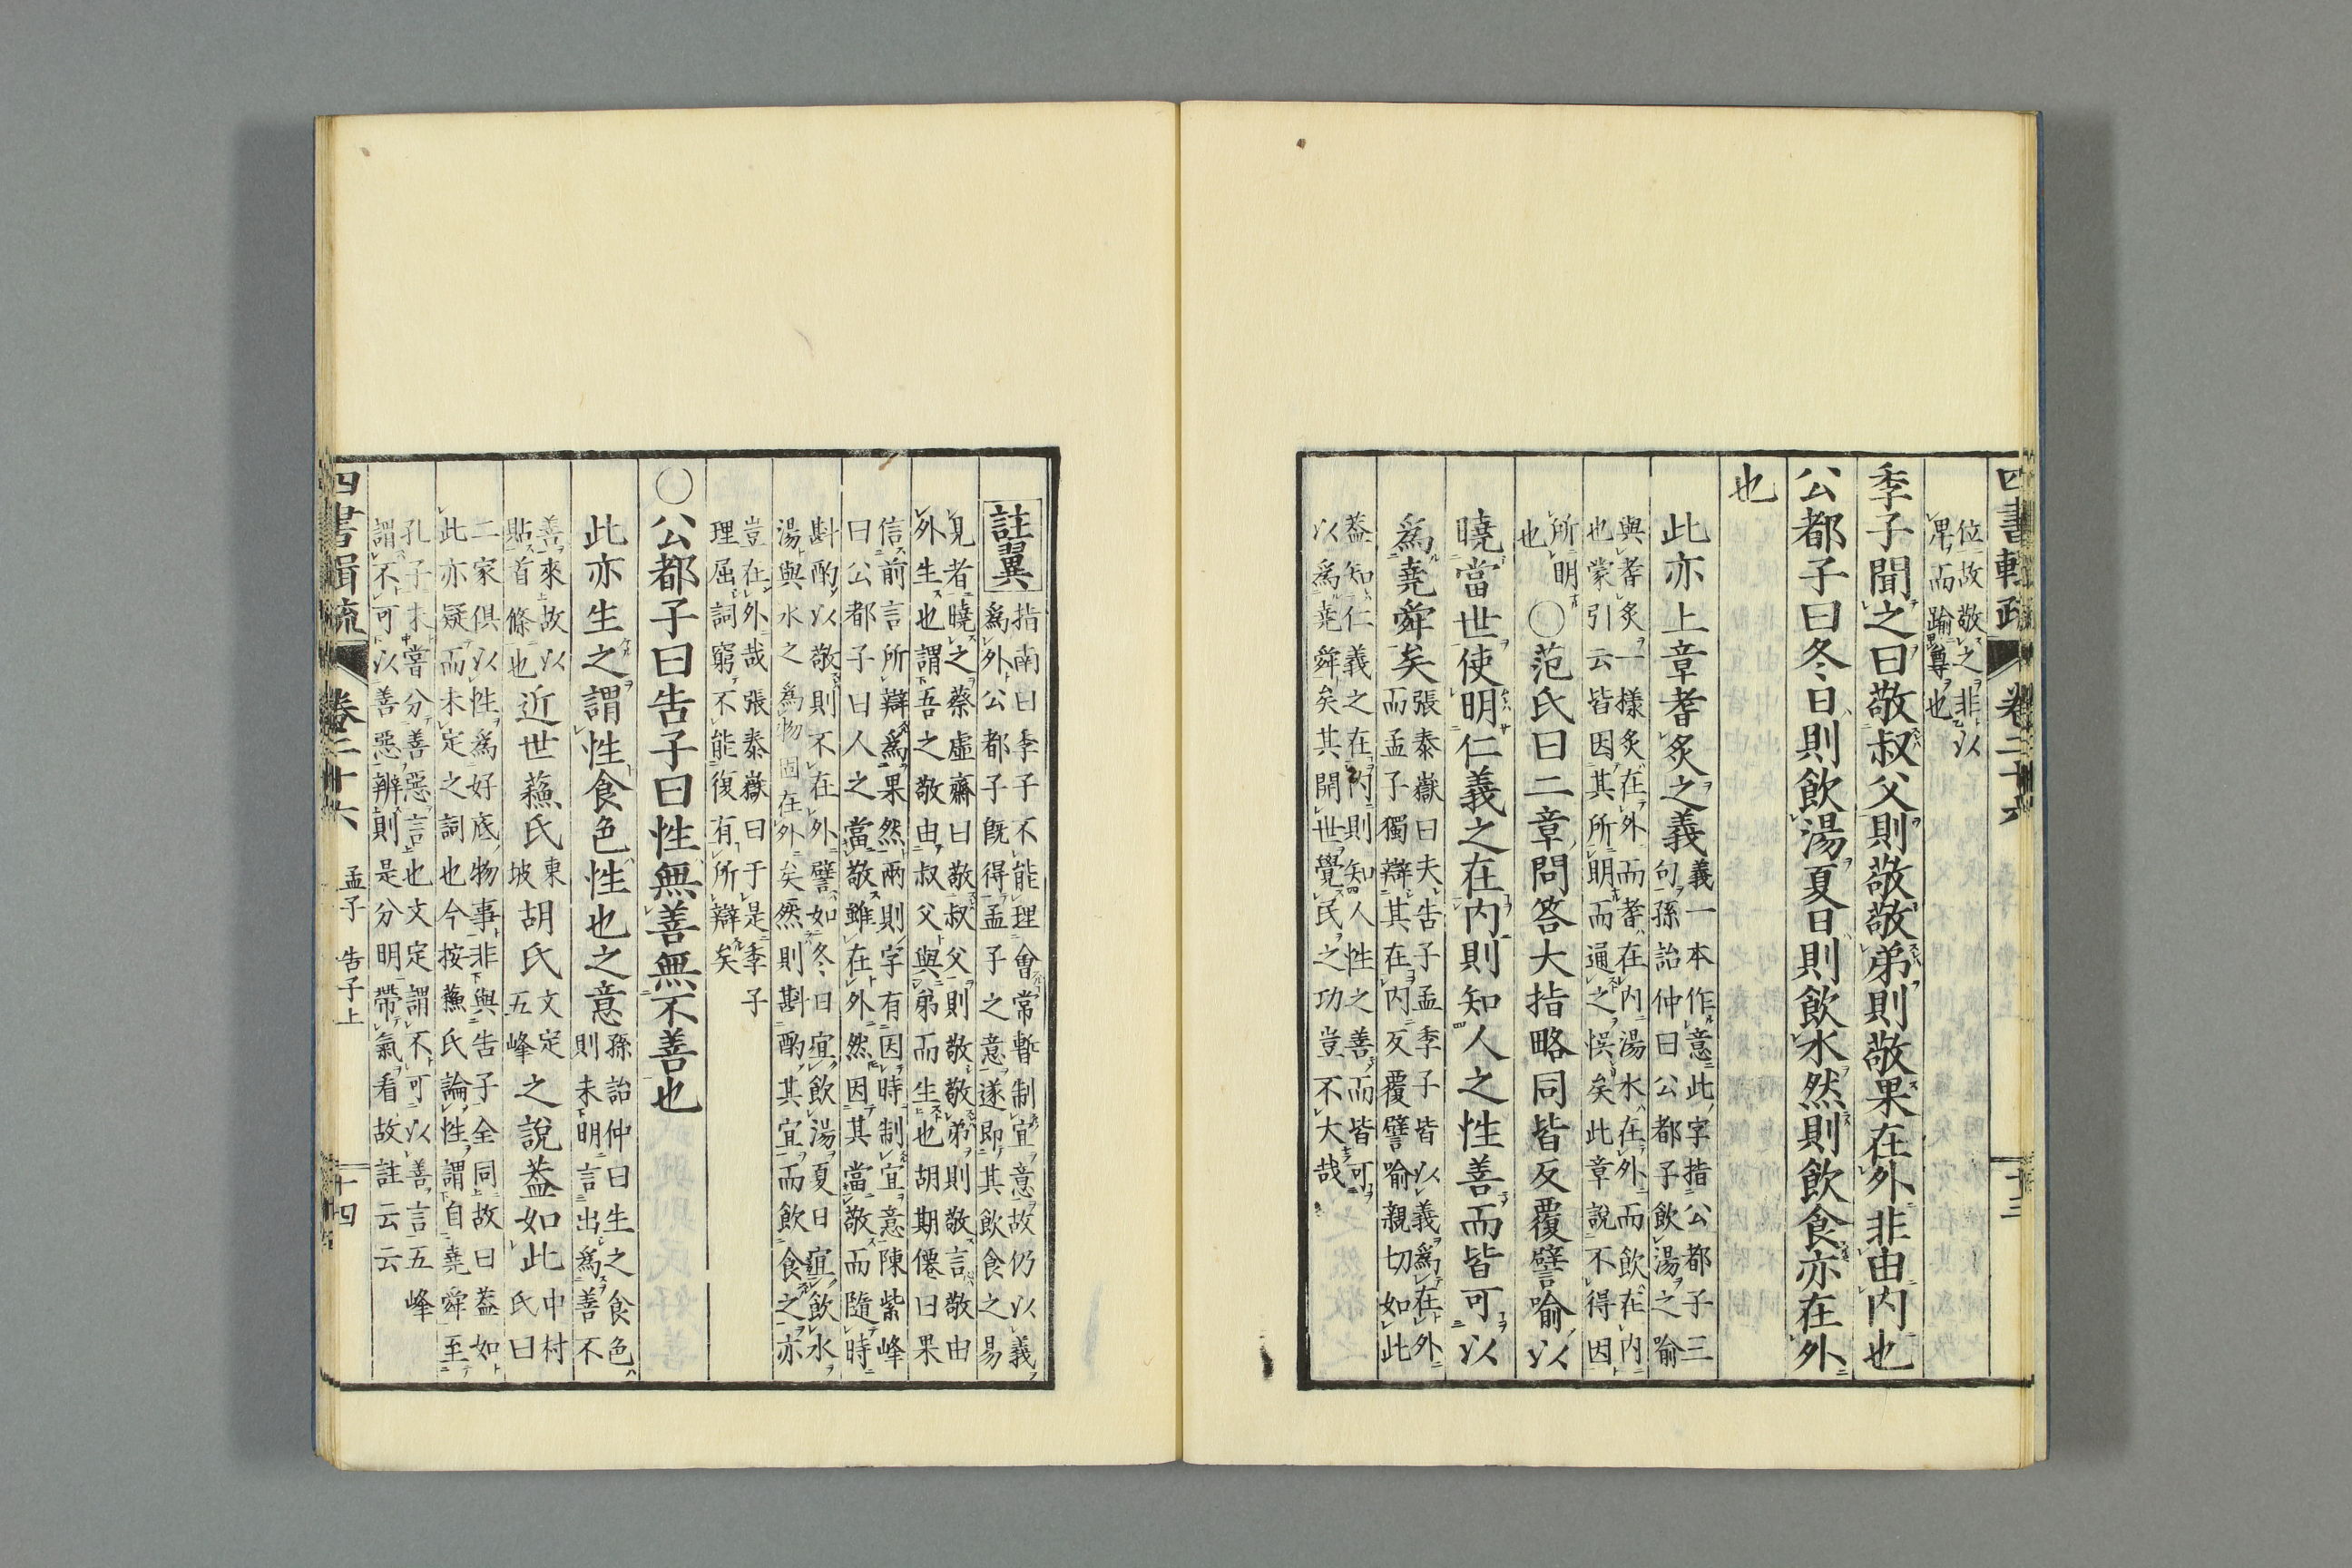 四書輯疏 卷二十六 十三
位故敬之非以
卑而踰尊也
季子聞之曰敬叔父則敬敬弟則敬果在外非由内也
公都子曰冬日則飲湯夏日則飲水然則飲食亦在外
也
此亦上章耆炙之義義一本作意此字指公都子三
句孫詒仲曰公都子飲湯之喻
與耆炙一樣炙在外而耆在内湯水在外而飲在内
也蒙引云皆因其所明而通之悞矣此章說不得因
所明
也
○范氏曰二章問答大指略同皆反覆譬喻以
曉當世使明仁義之在内則知人之性善而皆可以
為堯舜矣張泰嶽曰夫告子孟季子皆以義為在外
而孟子獨辯其在内反覆譬喻親切如此
葢知仁義之在内則知人性之善而皆可
以為堯舜矣其開世覺民之功豈不大哉
註翼 指南曰季子不能理會常暫制宜意故仍以義
為外公都子既得孟子之意遂即其飲食之易
見者曉之蔡虛齋曰敬叔父則敬敬弟則敬言敬由
外生也謂吾之敬由叔父與弟而生也胡期僊曰果
信前言所辯為果然兩則字有因時制宜意陳紫峰
曰公都子曰人之當敬雖在外然因其當敬而隨時
斟酌以敬則不在外譬如冬日宜飲湯夏日宜飲水
湯與水之為物固在外矣然則斟酌其宜而飲食之亦
豈在外哉張泰嶽曰于是季子
理屈詞窮不能復有所辯矣
○公都子曰告子曰性無善無不善也
此亦生之謂性食色性也之意孫詒仲曰生之食色
則未明言出為善不
善來故以
貼首條也
近世蘓氏東
坡
胡氏文定
五峰
之說葢如此中村
氏曰
二家俱以性為好底物事非與告子全同故曰葢如
此亦疑而未定之詞也今按蘓氏論性謂自堯舜至
孔子未嘗分善惡言也文定謂不可以善言五峰
謂不可以善惡辨則是分明帶氣看故註云云
四書輯疏 卷二十六 孟子 告子上 十四